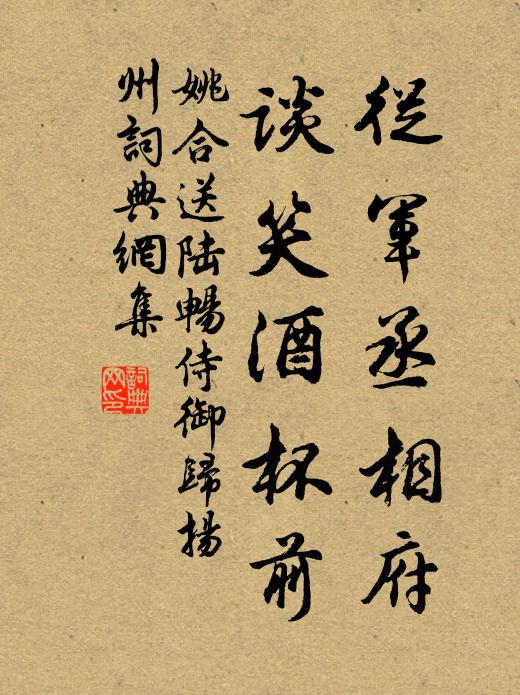 從軍丞相府
談笑酒杯前
姚合送陆暢侍御歸揚
州詞典網集
詞典
网印